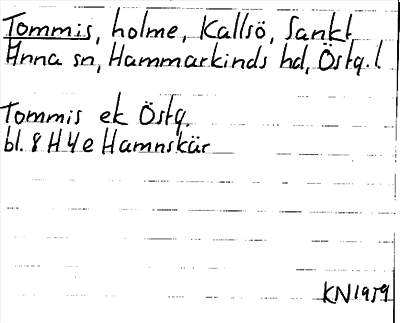 Tommis, holme, Kallsö, Sankt
Anna sn, Hammarkinds hd, Östg. l
Tommis ek Östg.
bl. 8 H 4 e Hamnskär
KN 1959